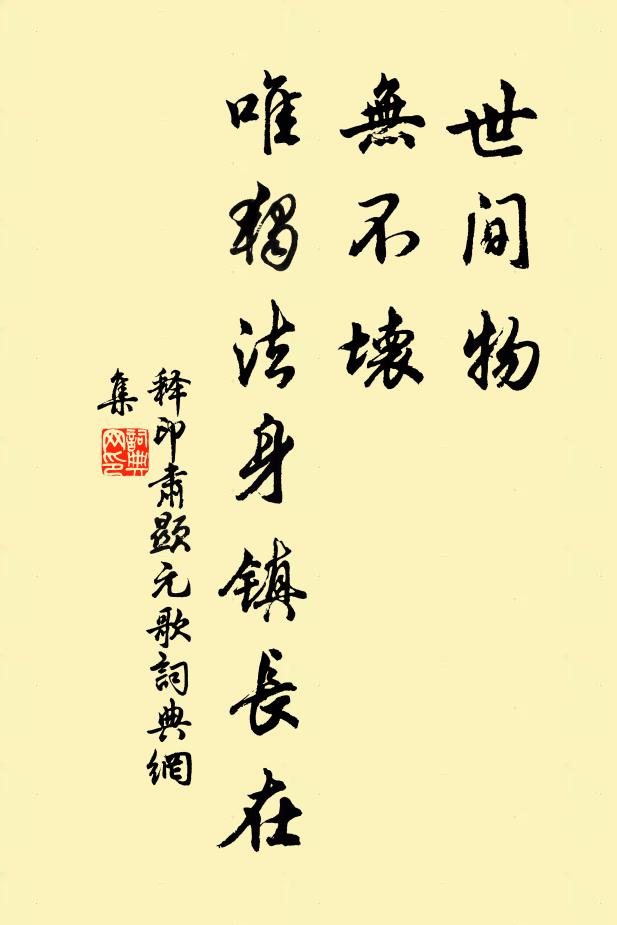 世间物
無不壞
唯獨法身鎮長在
释印肃顯元歌詞典網
集
詞典
网印